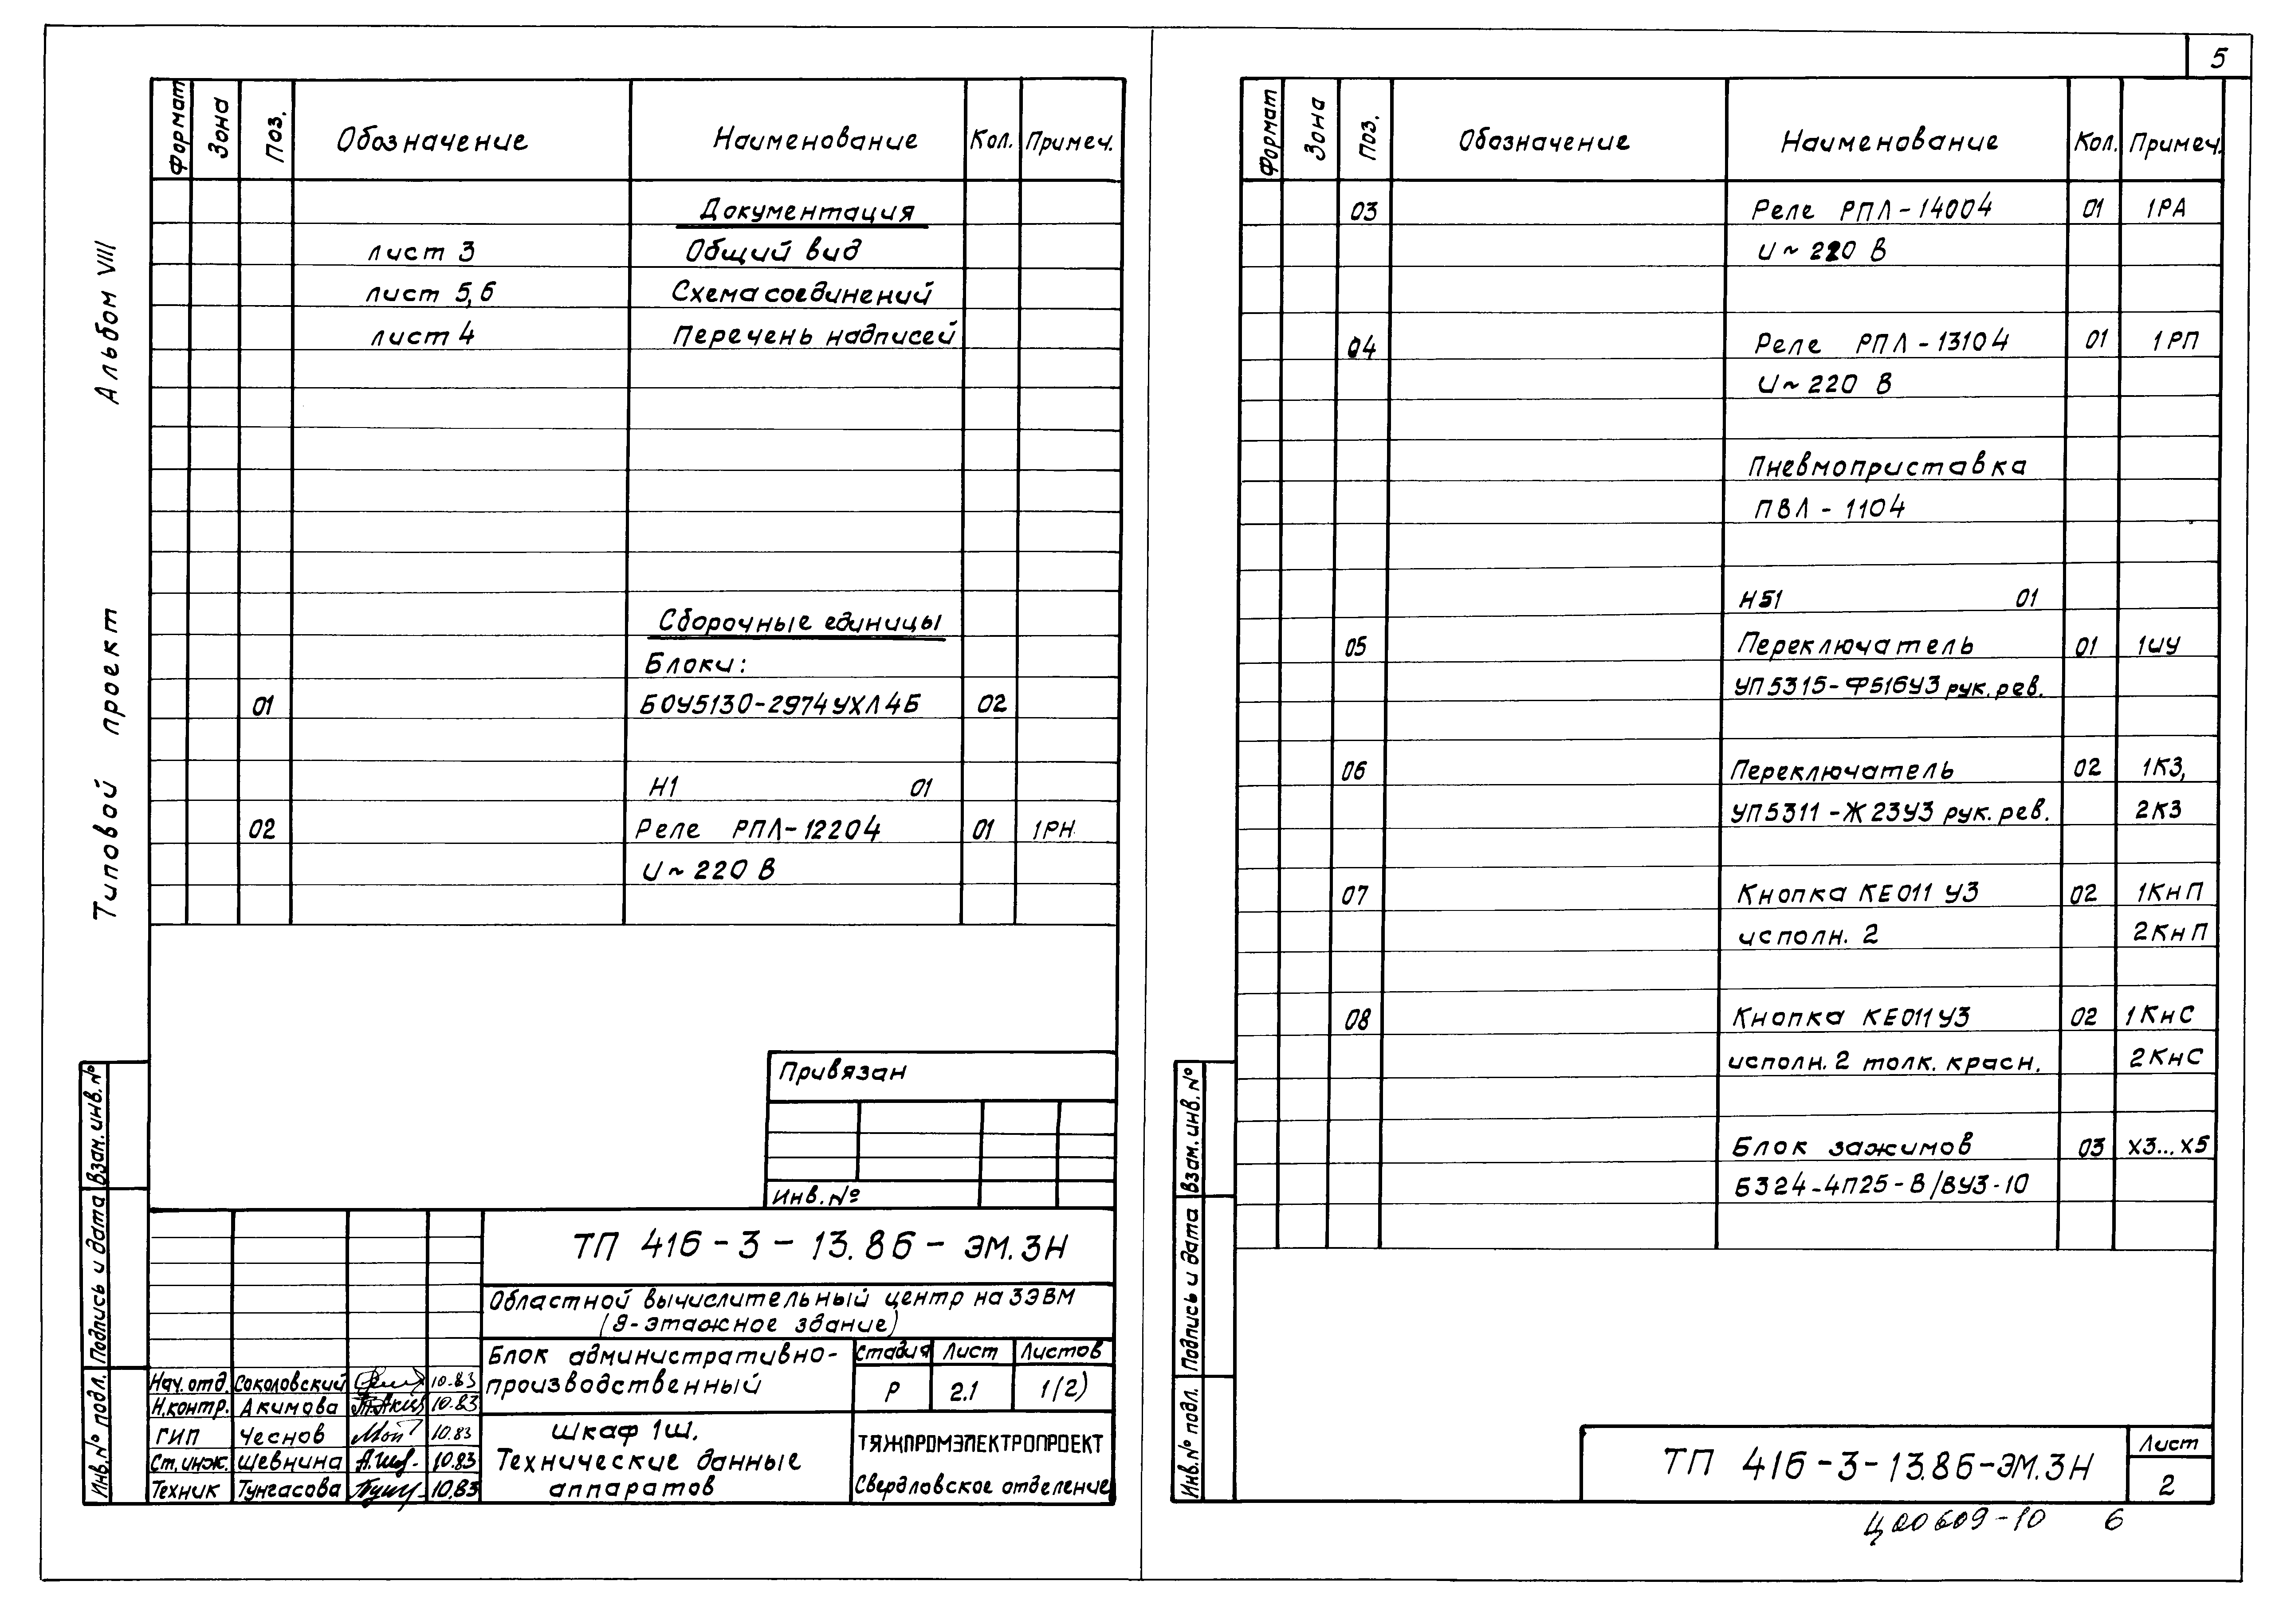 Альбом VIII
Типовой проект
Формат Зона Поз. Обозначение Наименование Кол. Примеч.
Документация
лист 3 Общий вид
лист 5,6 Схема соединений
лист 4 Перечень надписей
Сборочные единицы
Блоки:
01 БОУ5130-2974УХЛ4Б 02
Н1 01
02 Реле РПЛ-12204 01 1РН
U~220 В
Привязан
Инв.№
Взам.инв.№
Подпись и дата
Инв.№ подл.
ТП 416-3-13.86-ЭМ.ЗН
Областной вычислительный центр на 3 ЭВМ
(9-этажное здание)
Блок административно-
производственный
Стадия Лист Листов
Р 2.1 1(2)
Шкаф 1Ш.
Технические данные
аппаратов
ТЯЖПРОМЭЛЕКТРОПРОЕКТ
Свердловское отделение
Нач.отд. Соколовский 10.83
Н.контр. Акимова 10.83
ГИП Чеснов 10.83
Ст.инж. Шевнина 10.83
Техник Тунгасова 10.83
5
Формат Зона Поз. Обозначение Наименование Кол. Примеч.
03 Реле РПЛ-14004 01 1РА
U~220 В
04 Реле РПЛ-13104 01 1РП
U~220 В
Пневмоприставка
ПВЛ-1104
Н51 01
05 Переключатель 01 1ШУ
УП5315-Ф516У3 рук. рев.
06 Переключатель 02 1КЗ,
УП5311-Ж23У3 рук. рев. 2КЗ
07 Кнопка КЕ011 У3 02 1КнП
исполн. 2 2КнП
08 Кнопка КЕ011У3 02 1КнС
исполн. 2 толк. красн. 2КнС
Блок зажимов 03 Х3...Х5
Б324-4П25-В/ВУ3-10
Взам.инв.№
Подпись и дата
Инв.№ подл.
ТП 416-3-13.86-ЭМ.ЗН
Лист
2
Ц00609-10 6